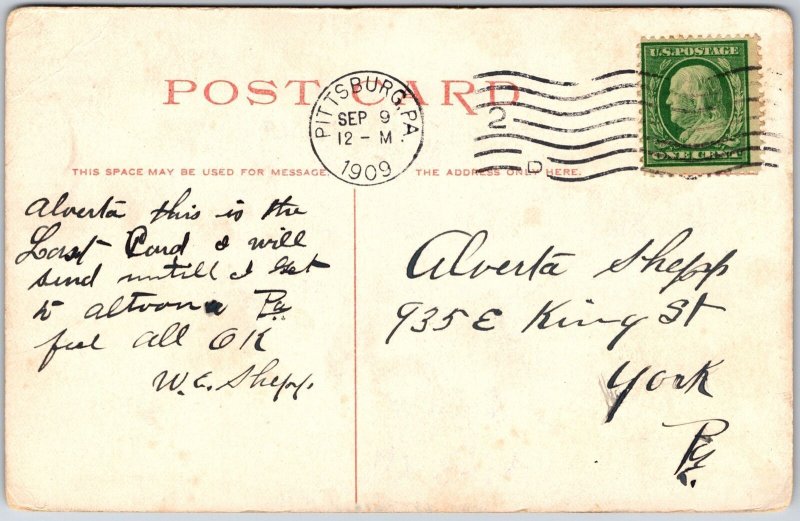 POST CARD
PITTSBURG, PA.
SEP 9
12 - M
1909
2
D
U.S. POSTAGE
ONE CENT
THIS SPACE MAY BE USED FOR MESSAGE.
THE ADDRESS ONLY HERE.
Alverta this is the
Last Card I will
send untill I get
to altoona Pa
feel all OK
W. E. Shepp.
Alverta Shepp
935 E King St
York
Pa